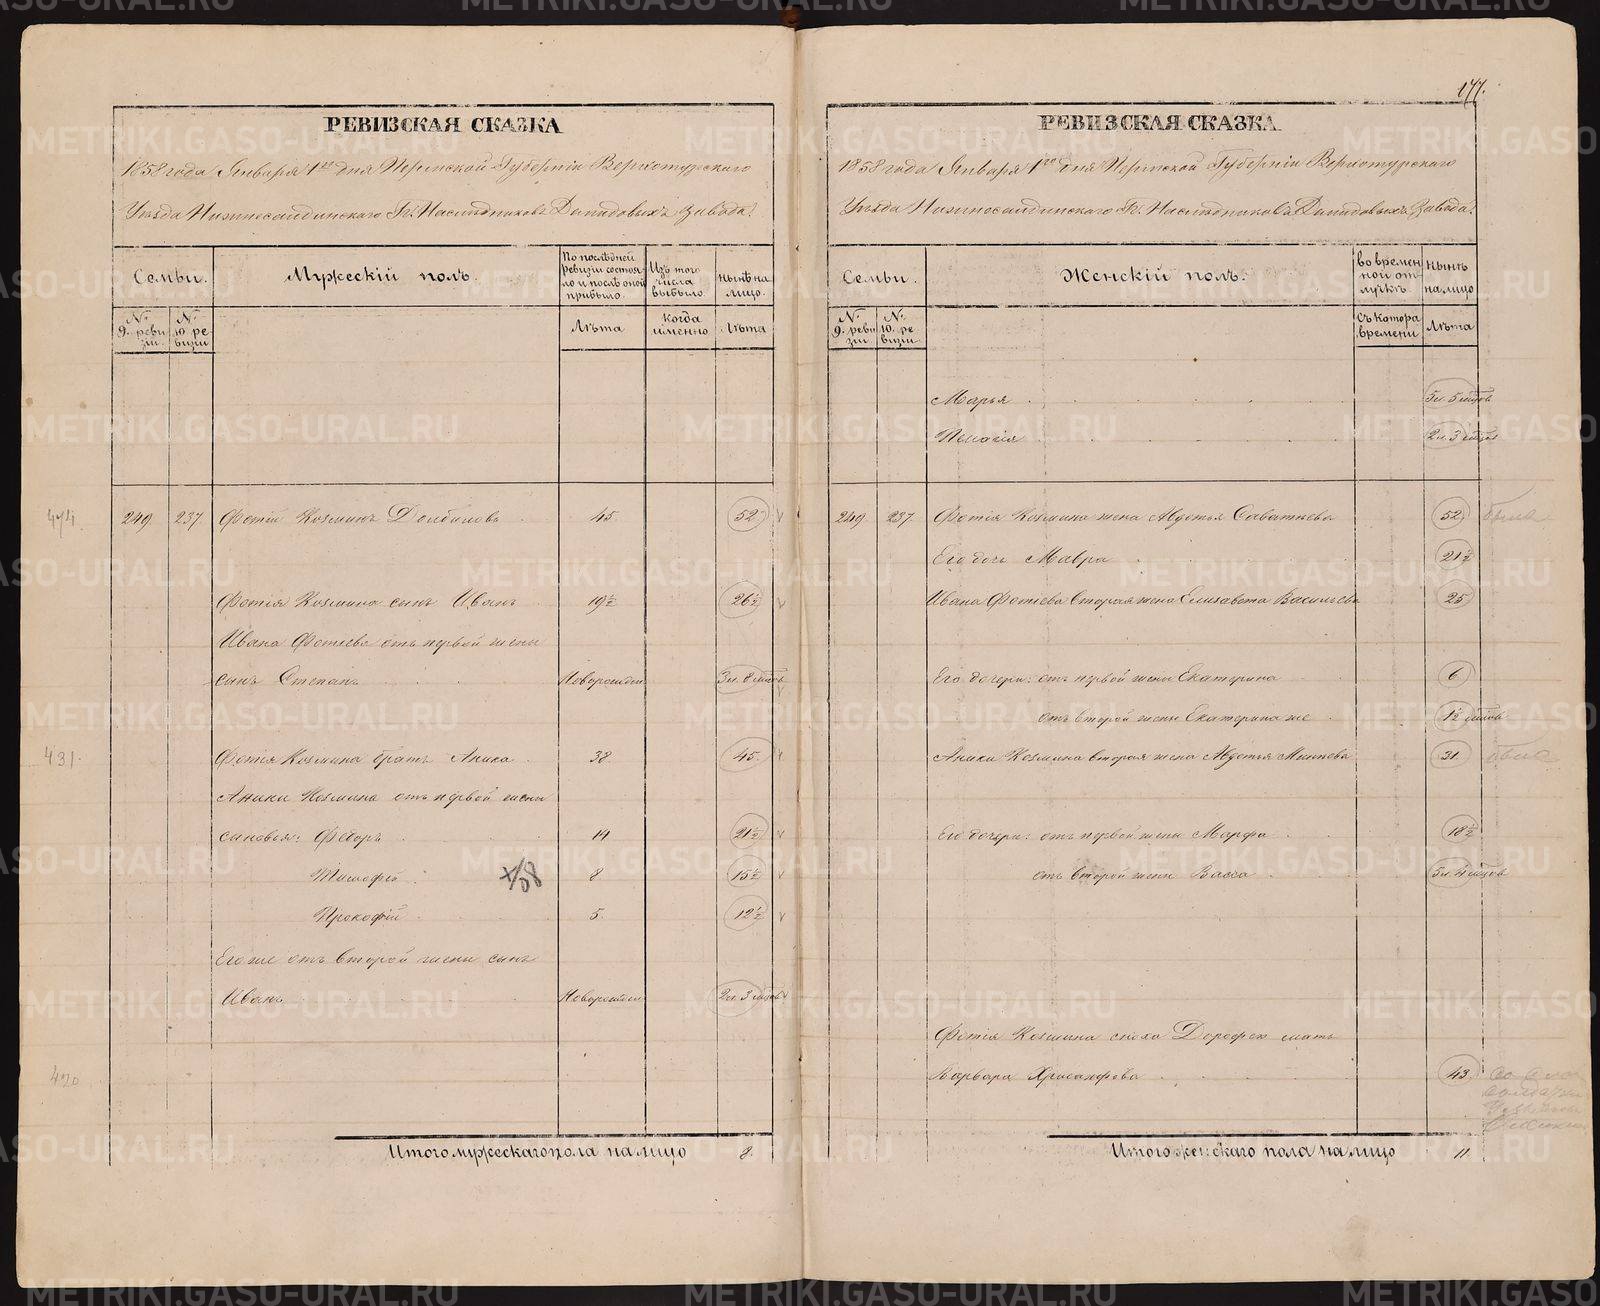 177.
РЕВИЗСКАЯ СКАЗКА
1858 года Января 1го дня Пермской Губерніи Верхотурскаго
Уѣзда Нижнесалдинскаго Гг. Наслѣдниковъ Демидовыхъ Завода.
Семьи.
Мужескій полъ.
По послѣдней ревизіи состояло и послѣ оной прибыло.
Изъ того числа выбыло.
нынѣ на лицо.
№ 9. ревизіи.
№ 10. ревизіи
Лѣта
когда именно
Лѣта
474.
249. 237. Фотій Козминъ Долбиловъ 45. 52
Фотія Козмина сынъ Иванъ 19½ 26½
Ивана Фотіева отъ первой жены
сынъ Степанъ Новорожден 3 л. 8 мцов
431. Фотія Козмина братъ Аника 38 45.
Аники Козмина отъ первой жены
сыновья: Федоръ 14 21½
Тимофей 8 15½
Прокофій 5. 12½
Его же отъ второй жены сынъ
Иванъ Новорожден 2 л. 3 мцов
420
Итого мужескаго пола на лицо 8.
РЕВИЗСКАЯ СКАЗКА
1858 года Января 1го дня Пермской Губерніи Верхотурскаго
Уѣзда Нижнесалдинскаго Гг. Наслѣдниковъ Демидовыхъ Завода.
Семьи.
Женскій полъ.
во временной отлучкѣ.
нынѣ на лицо
№ 9. ревизіи
№ 10. ревизіи.
Съ котора времени
Лѣта
Марья 5 л. 5 мцов
Пелагія 2 л. 3 мцов
249. 237. Фотія Козмина жена Авдотья Саватеева 52
Его дочь Мавра 21½
Ивана Фотіева вторая жена Елизавета Васильева 25
Его дочери: отъ первой жены Екатерина 6
отъ второй жены Екатерина же 1½ мцов
Аники Козмина вторая жена Авдотья Минеева 31.
Его дочери: отъ первой жены Марфа 18½
отъ второй жены Васса 5 л. 4 мцов
Фотія Козмина сноха Дорофея мать
Варвара Хрисанфова 43.
Итого женскаго пола на лицо 11.
METRIKI.GASO-URAL.RU